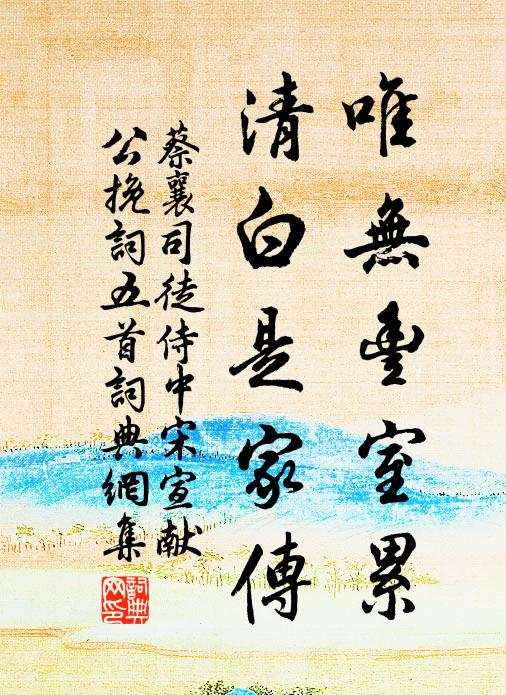 唯無豐室累
清白是家傳
蔡襄司徒侍中宋宣献
公挽詞五首詞典網集
詞典
网印